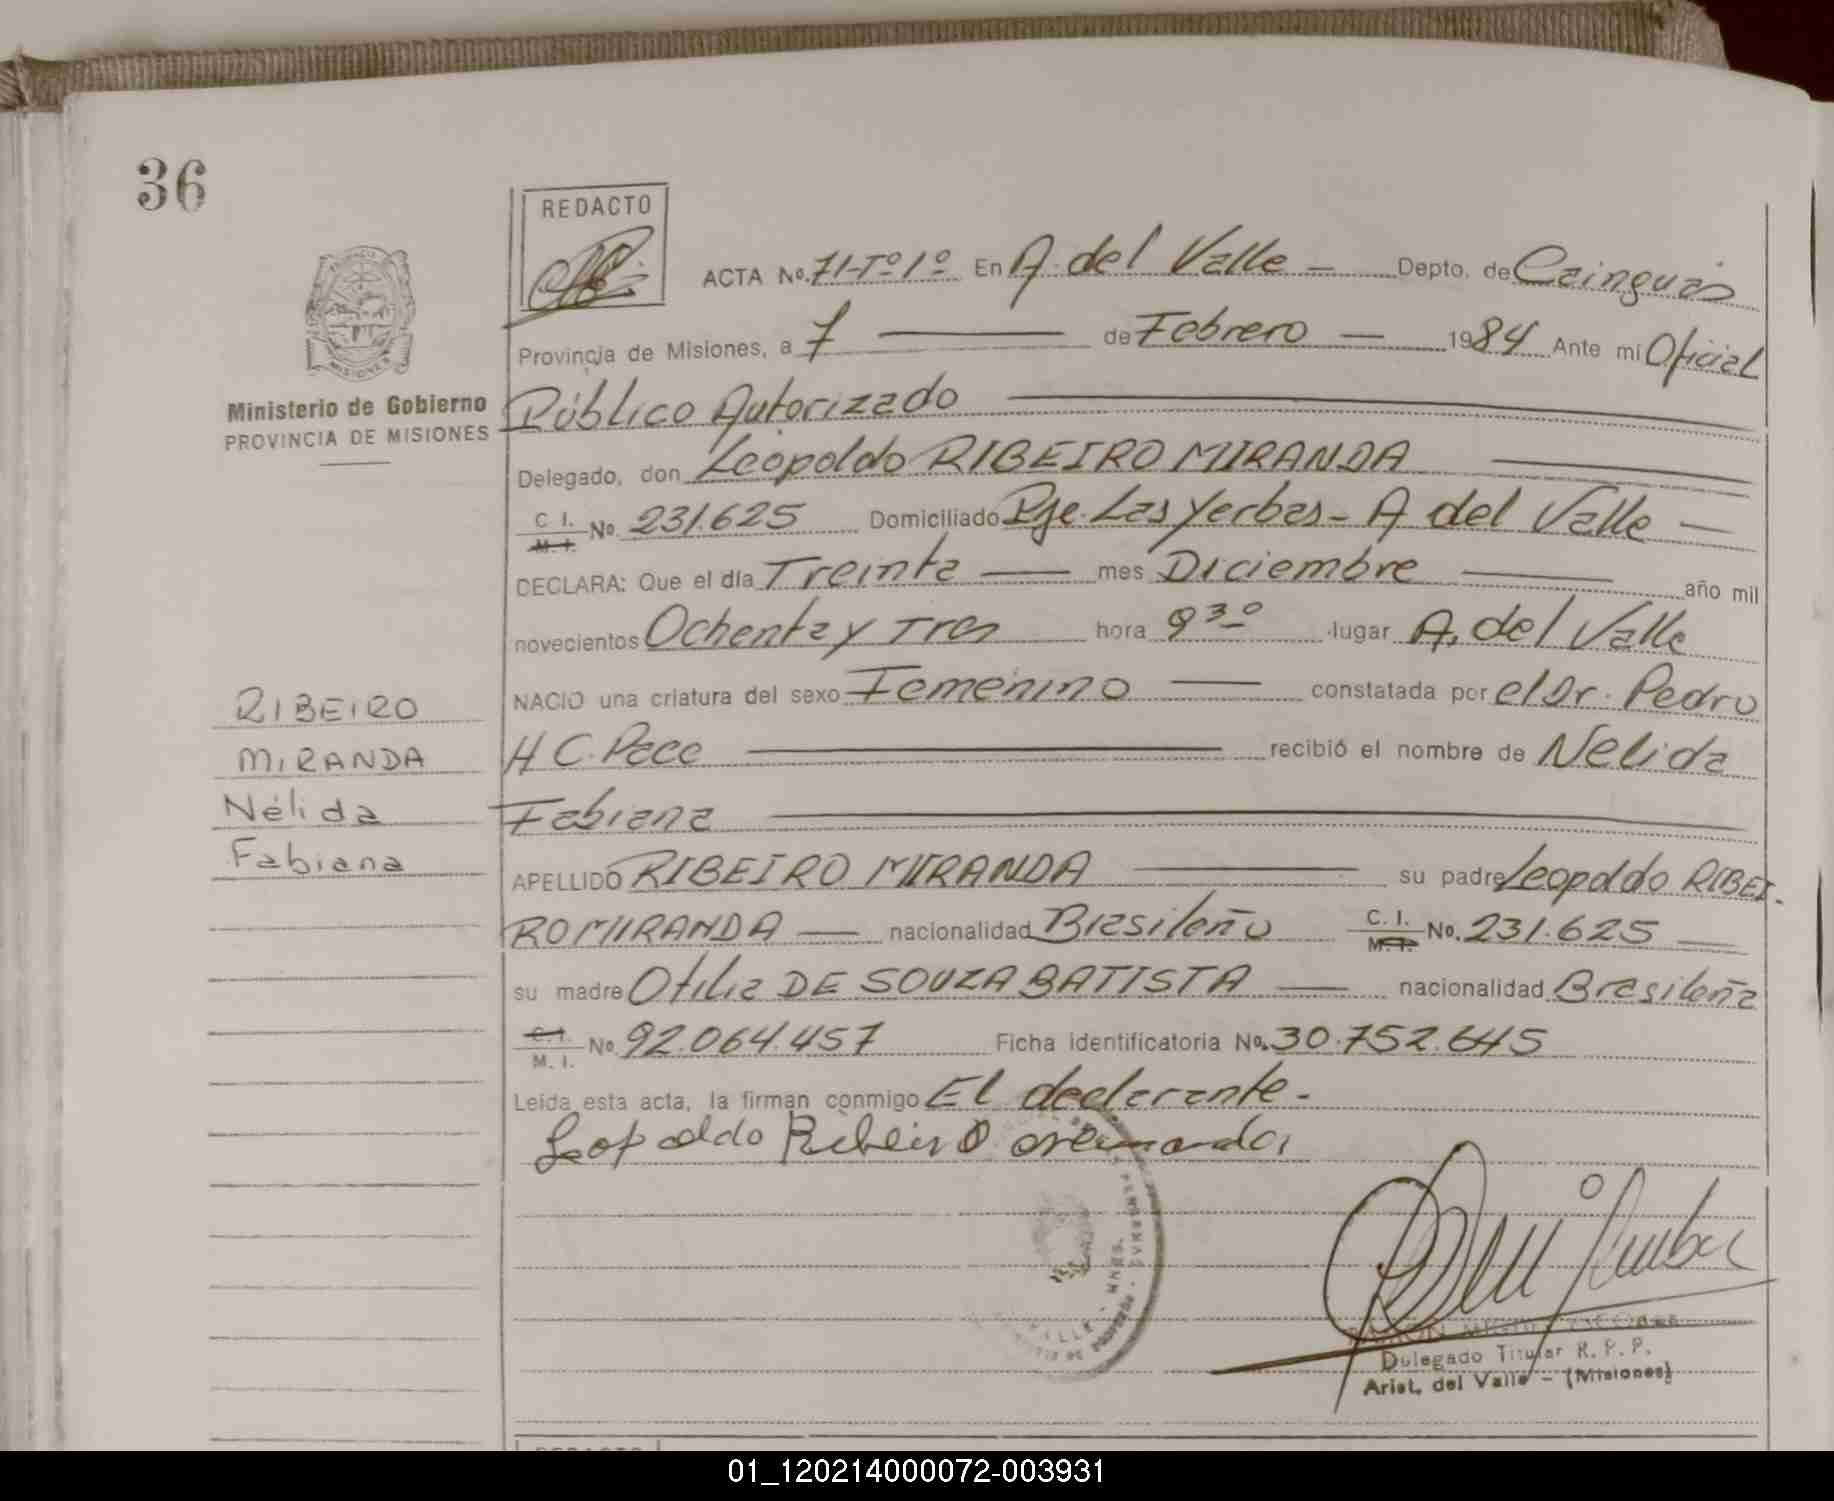 36
REDACTO
ACTA No. 71-Tº1º En A. del Valle — Depto. de Cainguás
Provincia de Misiones, a 7 — de Febrero — 1984 Ante mí Oficial
Ministerio de Gobierno
PROVINCIA DE MISIONES
Público Autorizado
Delegado, don Leopoldo RIBEIRO MIRANDA
C. I. M. I. No. 231.625 Domiciliado Pje. Las Yerbas - A del Valle —
DECLARA: Que el día Treinta — mes Diciembre — año mil
novecientos Ochenta y Tres hora 9 30 lugar A. del Valle
NACIO una criatura del sexo Femenino — constatada por el Dr. Pedro
H C. Pece — recibió el nombre de Nelida
Fabiana
RIBEIRO
MIRANDA
Nélida
Fabiana
APELLIDO RIBEIRO MIRANDA — su padre Leopoldo RIBEI-
RO MIRANDA — nacionalidad Brasileño C. I. M. I. No. 231.625 —
su madre Otilia DE SOUZA BATISTA — nacionalidad Brasileña
C. I. M. I. No. 92.064.457 Ficha identificatoria No. 30.752.645
Leída esta acta, la firman conmigo El declarante.
Leopoldo Ribeiro
Delegado Titular R. P. P.
Arist. del Valle - (Misiones)
REDACTO
01_120214000072-003931